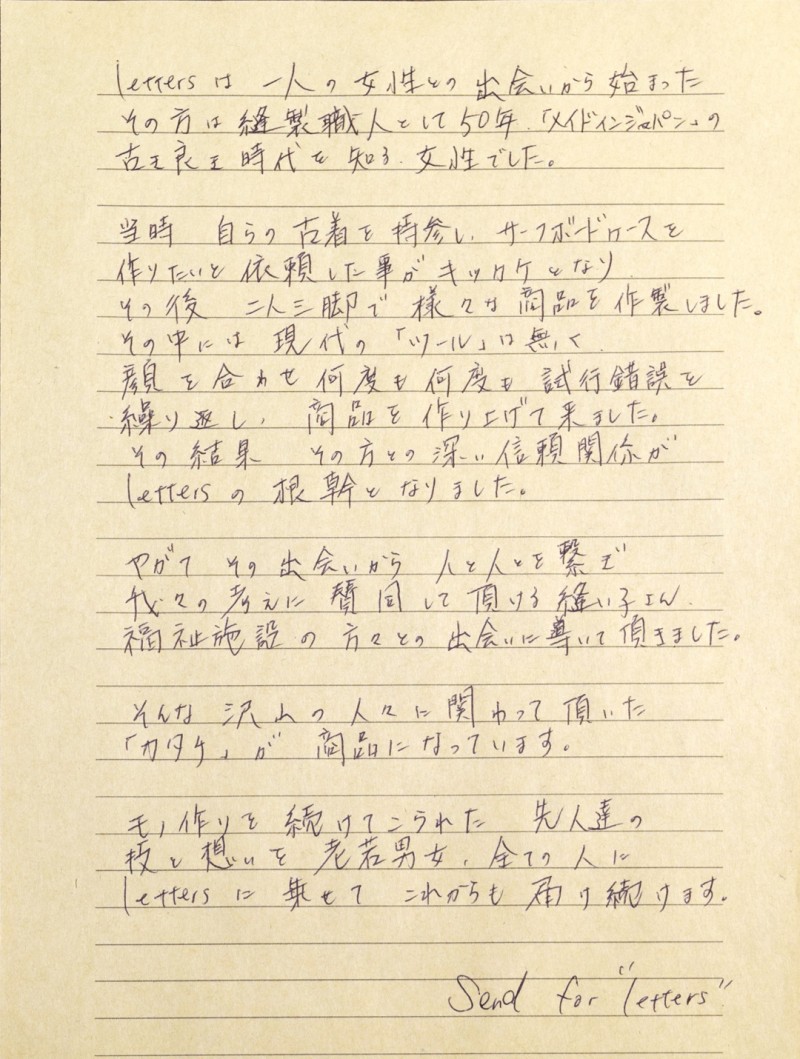 lettersは 一人の女性との出会いから始まった
その方は縫製職人として50年、「メイドインジャパン」の
古き良き時代を知る、女性でした。
当時 自らの古着を持参し、サーフボードケースを
作りたいと依頼した事がキッカケとなり
その後 二人三脚で様々な商品を作製しました。
その中には現代の「ツール」は無く、
顔を合わせ何度も何度も試行錯誤を
繰り返し、商品を作り上げて来ました。
その結果 その方との深い信頼関係が
lettersの根幹となりました。
やがて その出会いから 人と人とを繋ぎ
我々の考えに賛同して頂ける縫い子さん、
福祉施設の方々との出会いに導いて頂きました。
そんな沢山の人々に関わって頂いた
「カタチ」が 商品になっています。
モノ作りを続けてこられた 先人達の
技と想いを老若男女、全ての人に
lettersに乗せて これからも届け続けます。
Send for "letters"